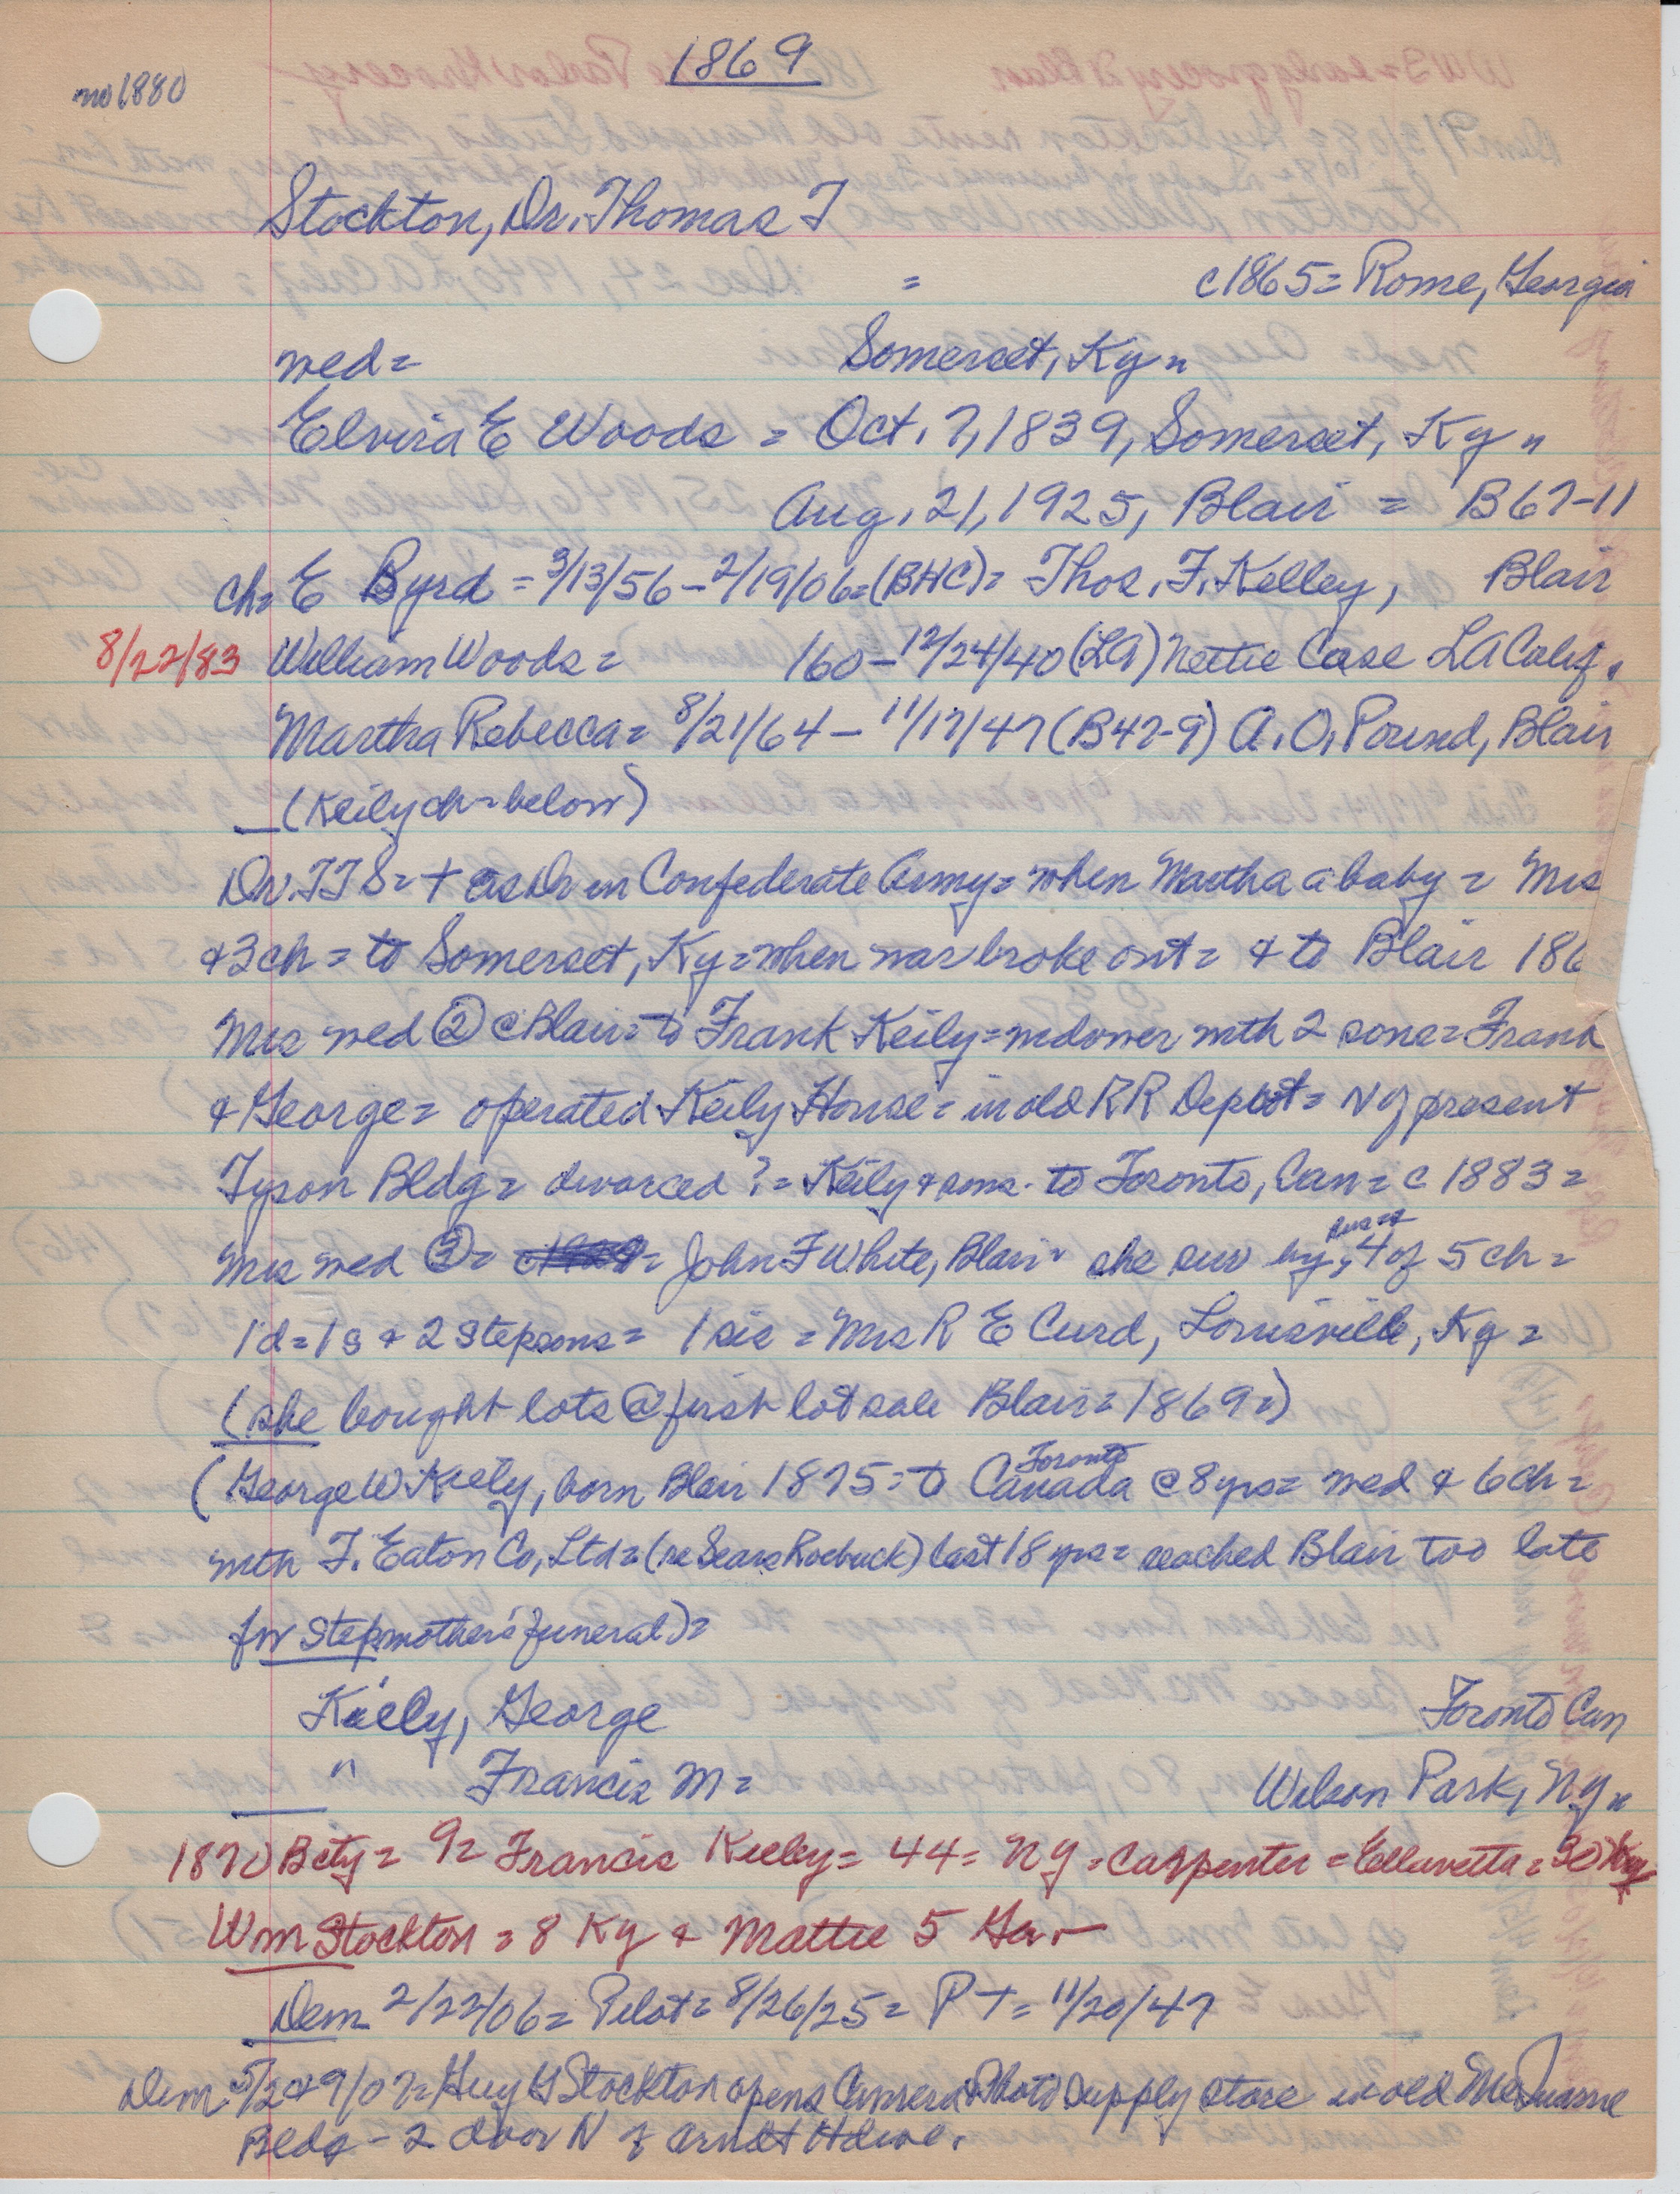 1869
no 1880
Stockton, Dr. Thomas T
= c1865 = Rome, Georgia
med = Somerset, Ky "
Elvira E Woods = Oct. 7, 1839, Somerset, Ky "
Aug. 21, 1925, Blair = B67-11
ch = E Byrd = 3/13/56 - 2/19/06 = (BHC) = Thos. F. Kelley, Blair
8/22/83 William Woods = 160 - 12/24/40 (LA) Nettie Case LA Calif.
Martha Rebecca = 8/21/64 - 11/17/47 (B47-9) A. O. Pound, Blair
(Keily ch = below)
Dr. TTS = + as Dr in Confederate Army = when Martha a baby = Mrs
& 3 ch = to Somerset, Ky = when war broke out = & to Blair 186
Mrs med ② @ Blair = to Frank Keily = widower with 2 sons = Frank
& George = operated Keily House = in old RR Depot = N of present
Tyson Bldg = divorced ? = Keily & sons - to Toronto, Can = c 1883 =
Mrs med ③ = John F White, Blair " she sur by, 4 of 5 ch =
1 d = 1 s & 2 stepsons = 1 sis = Mrs R E Curd, Louisville, Ky =
(she bought lots @ first lot sale Blair = 1869 =)
(George W Kiely, born Blair 1875 = to Toronto Canada @ 8 yrs = med & 6 ch =
with T. Eaton Co, Ltd = (re Sears Roebuck) last 18 yrs = reached Blair too late
for stepmother's funeral) =
Kiely, George Toronto Can
" Francis M = Wilson Park, NY "
1870 Bcty = 92 Francis Keeley = 44 = NY = Carpenter = Elluvetta = 30 Ky
Wm Stockton = 8 Ky & Mattie 5 Ga. -
Dem 2/22/06 = Pilot = 8/26/25 = P T = 11/20/47
Dem 5/2&9/07 = Huy Stockton opens Camera & Photo Supply store in old
Bldg - 2 door N of Arndt Hdwe.